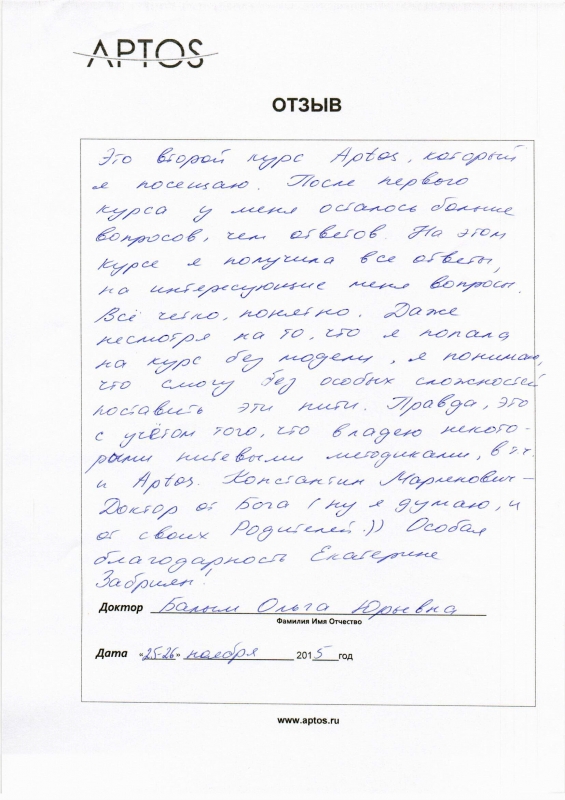 APTOS
ОТЗЫВ
Это второй курс Aptos, который
я посещаю. После первого
курса у меня осталось больше
вопросов, чем ответов. На этом
курсе я получила все ответы,
на интересующие меня вопросы.
Всё чётко, понятно. Даже
несмотря на то, что я попала
на курс без модели, я понимаю,
что смогу без особых сложностей
поставить эти нити. Правда, это
с учётом того, что владею некото-
рыми нитевыми методиками, в т.ч.
и Aptos. Константин Марленович –
Доктор от Бога (ну я думаю, и
от своих Родителей:)) Особая
благодарность Екатерине
Забриян!
Доктор Ольга Юрьевна
Фамилия Имя Отчество
Дата «25-26» ноября 2015 год
www.aptos.ru